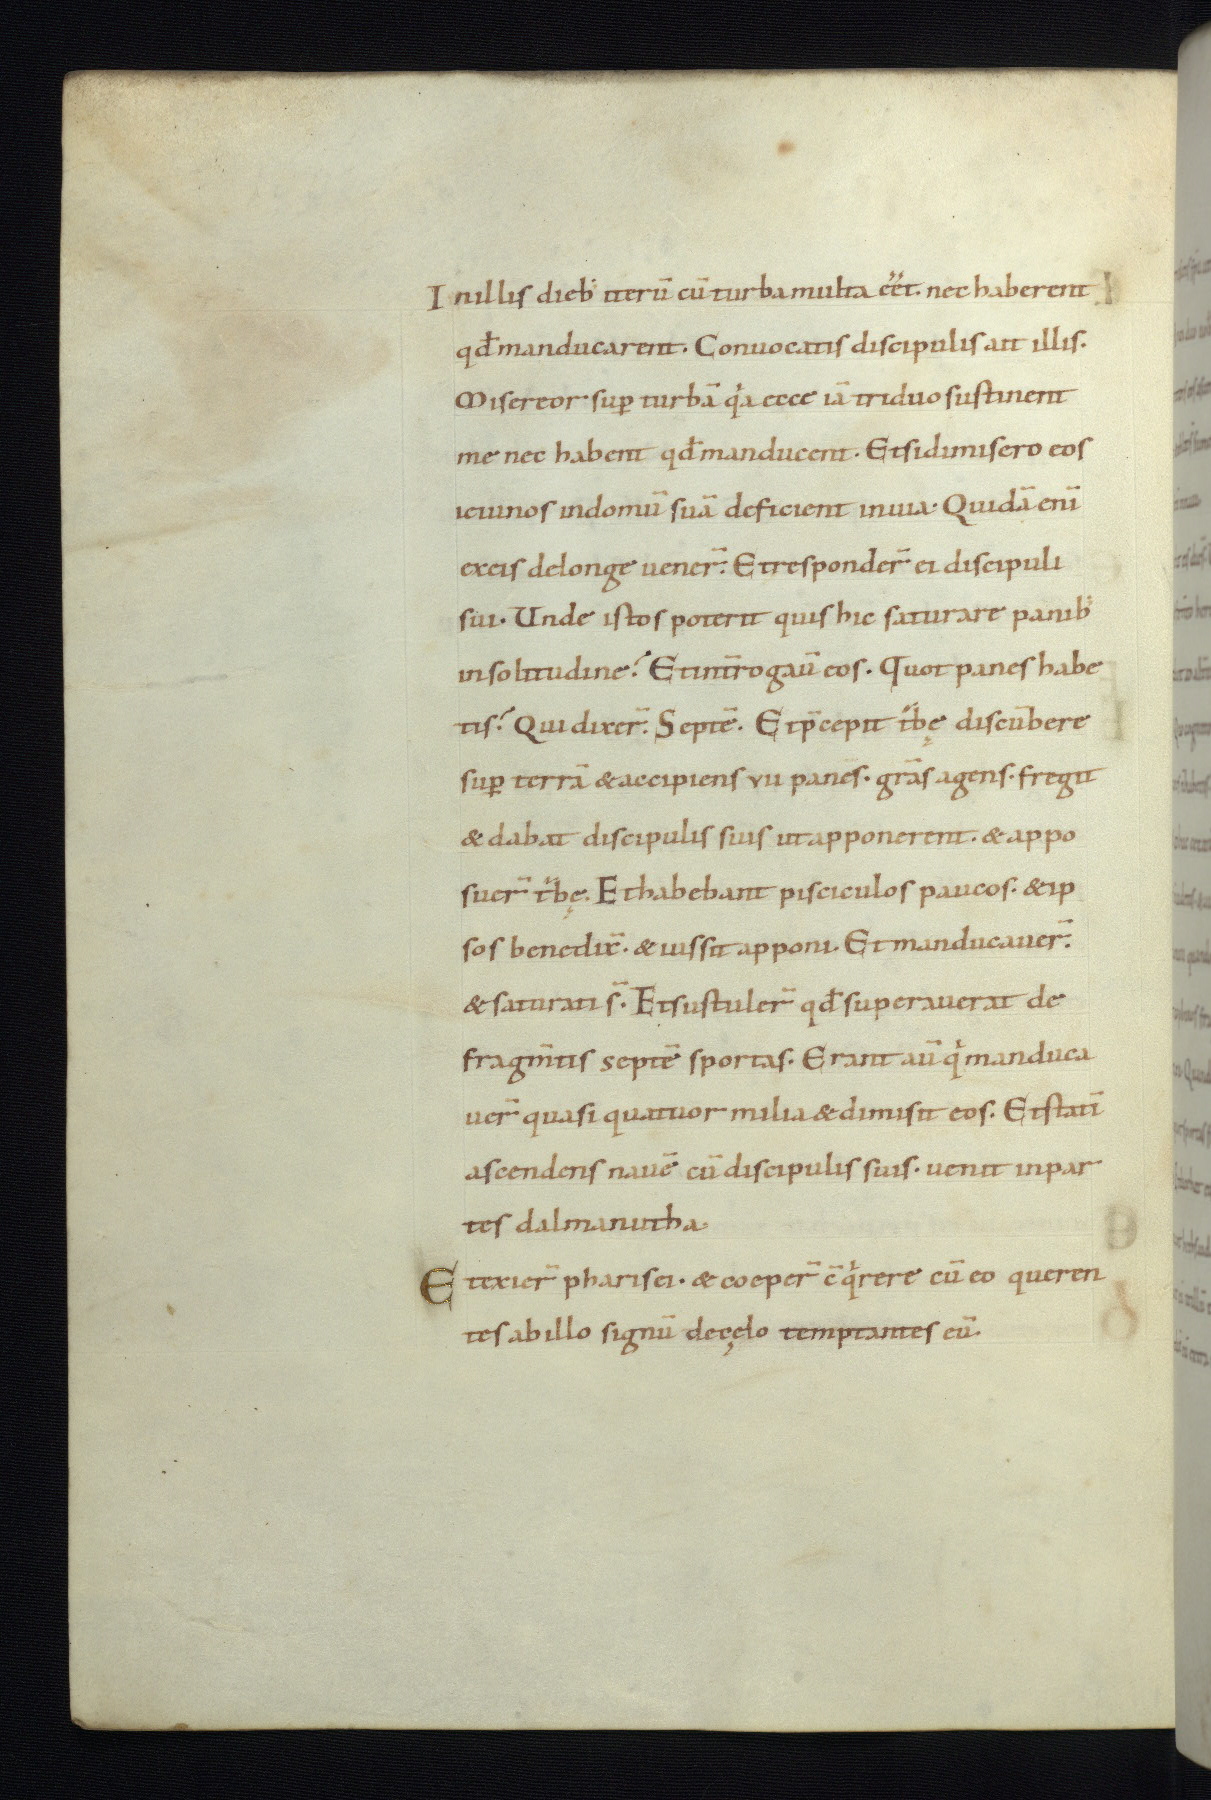 In illis dieb; iterū cū turba multa eēt. nec haberent
qđ manducarent. Conuocatis discipulis ait illis.
Misereor sup turbā qia ecce iā triduo sustinent
me nec habent qđ manducent. Et si dimisero eos
ieiunos in domū suā deficient in uia. Quidā enī
ex eis de longe uener̄. Et responder̄ ei discipuli
sui. Unde istos poterit quis hic saturare panib;
in solitudine? Et int̄rogaū eos. Quot panes habe
tis? Qui dixer̄. Septē. Et p̄cepit t̄bę discūbere
sup terrā & accipiens vii panes. gr̄as agens. fregit
& dabat discipulis suis ut apponerent. & appo
suer̄ t̄bę. Et habebant pisciculos paucos. & ip
sos benedix̄. & iussit apponi. Et manducauer̄.
& saturati s̄. Et sustuler̄ qđ superauerat de
fragm̄tis septē sportas. Erant aū qi manduca
uer̄ quasi quatuor milia & dimisit eos. Et statī
ascendens nauē cū discipulis suis. uenit in par
tes dalmanutha.
Et exier̄ pharisei. & coeper̄ c̄qirere cū eo queren
tes ab illo signū de cęlo temptantes eū.